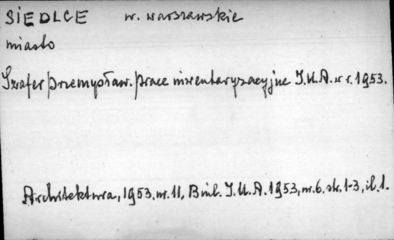 SIEDLCE w. warszawskie
miasto
Szafer Przemysław. Prace inwentaryzacyjne I.U.A. w r. 1953.
Architektura, 1953. nr. 11, Biul. I.U.A. 1953, nr. 6, str. 1-3, il. 1.